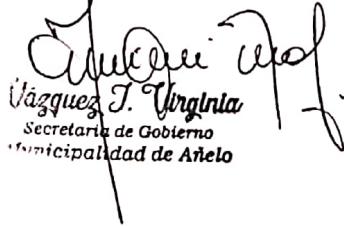 Vázquez J. Virginia
Secretaria de Gobierno
Municipalidad de Añelo